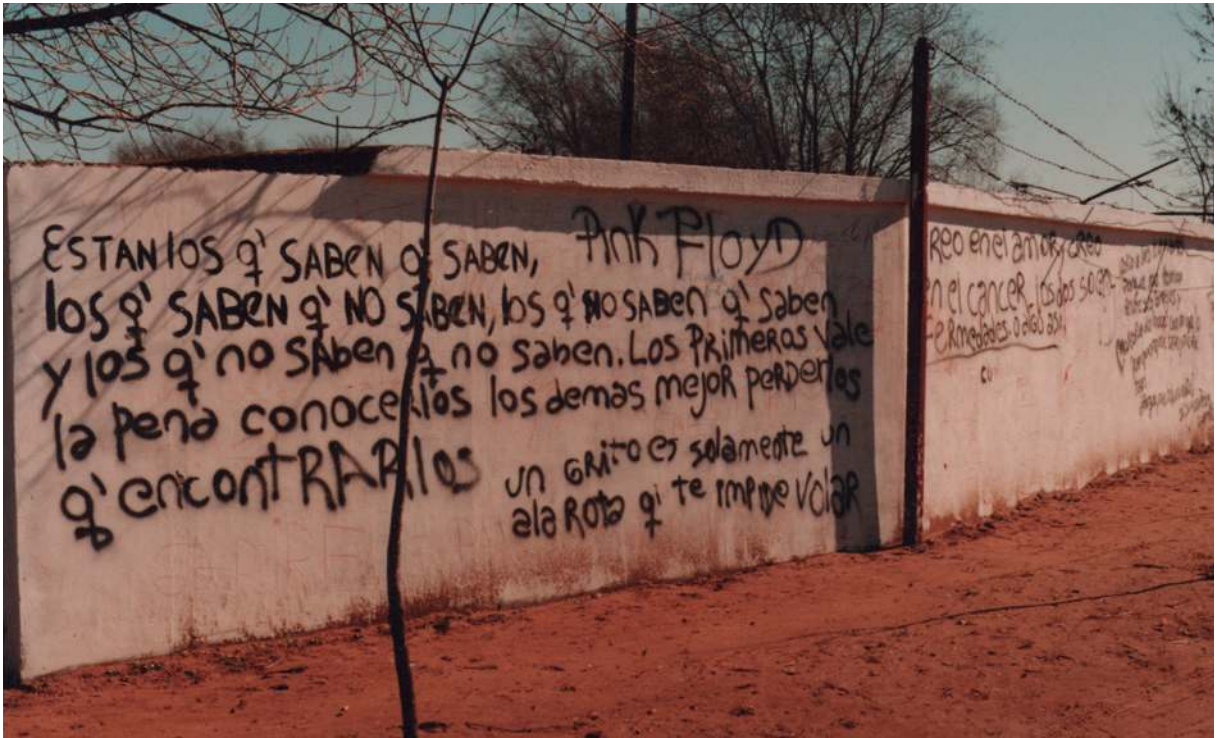 ESTAN los q' SABEN q' SABEN,
los q' SABEN q' NO SABEN, los q' NO SABEN q' saben
y los q' no SAben q no saben. Los PRimeros vale
la pena conocerlos los demas mejor perderlos
q' encontRARlos
Pink Floyd
un GRito es solamente un
ala Rota q' te impide volaR
REO en el amor, CREO
n el cancer los dos so en
fermedades o algo asi.
CU